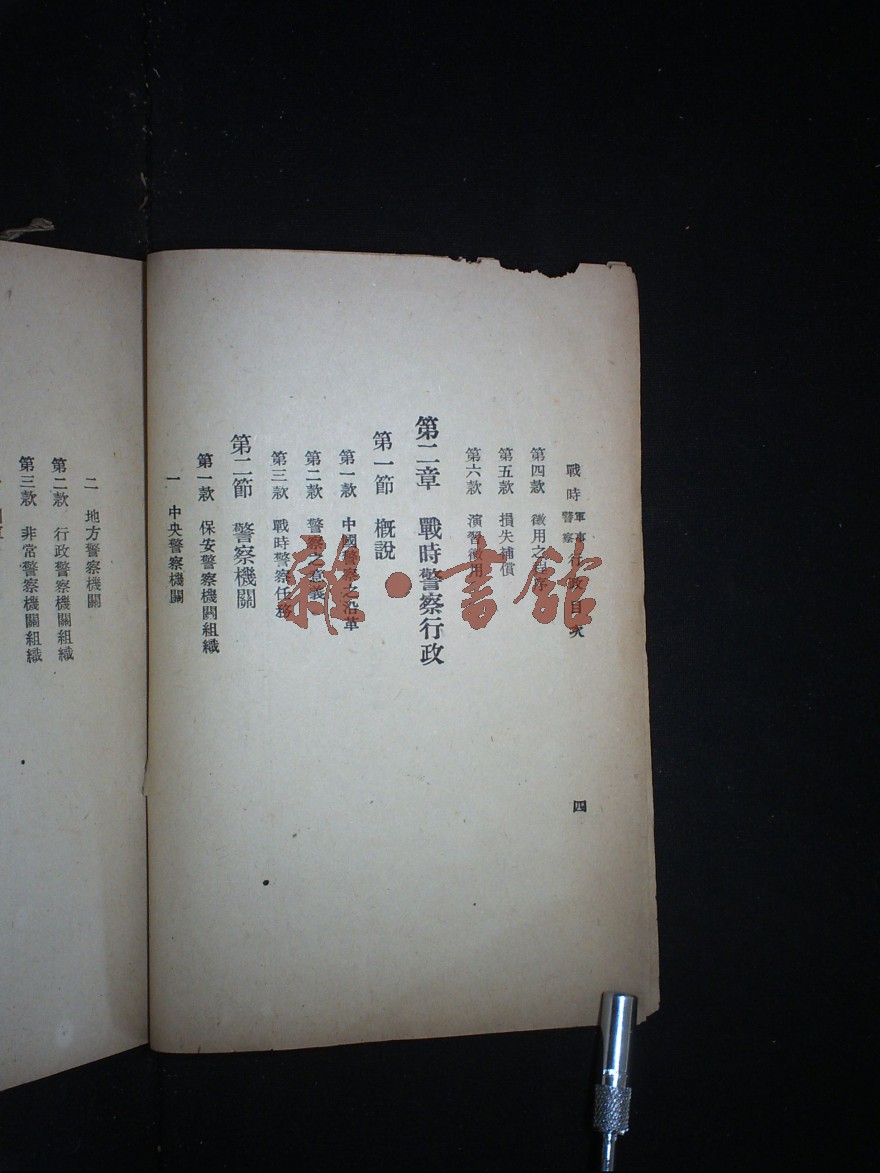 戰時軍事警察行政目次
四
第四款 徵用之程序
第五款 損失補償
第六款 演習徵用
第二章 戰時警察行政
第一節 概說
第一款 中國警察之沿革
第二款 警察之意義
第三款 戰時警察任務
第二節 警察機關
第一款 保安警察機關組織
一 中央警察機關
二 地方警察機關
第二款 行政警察機關組織
第三款 非常警察機關組織
雜·書館